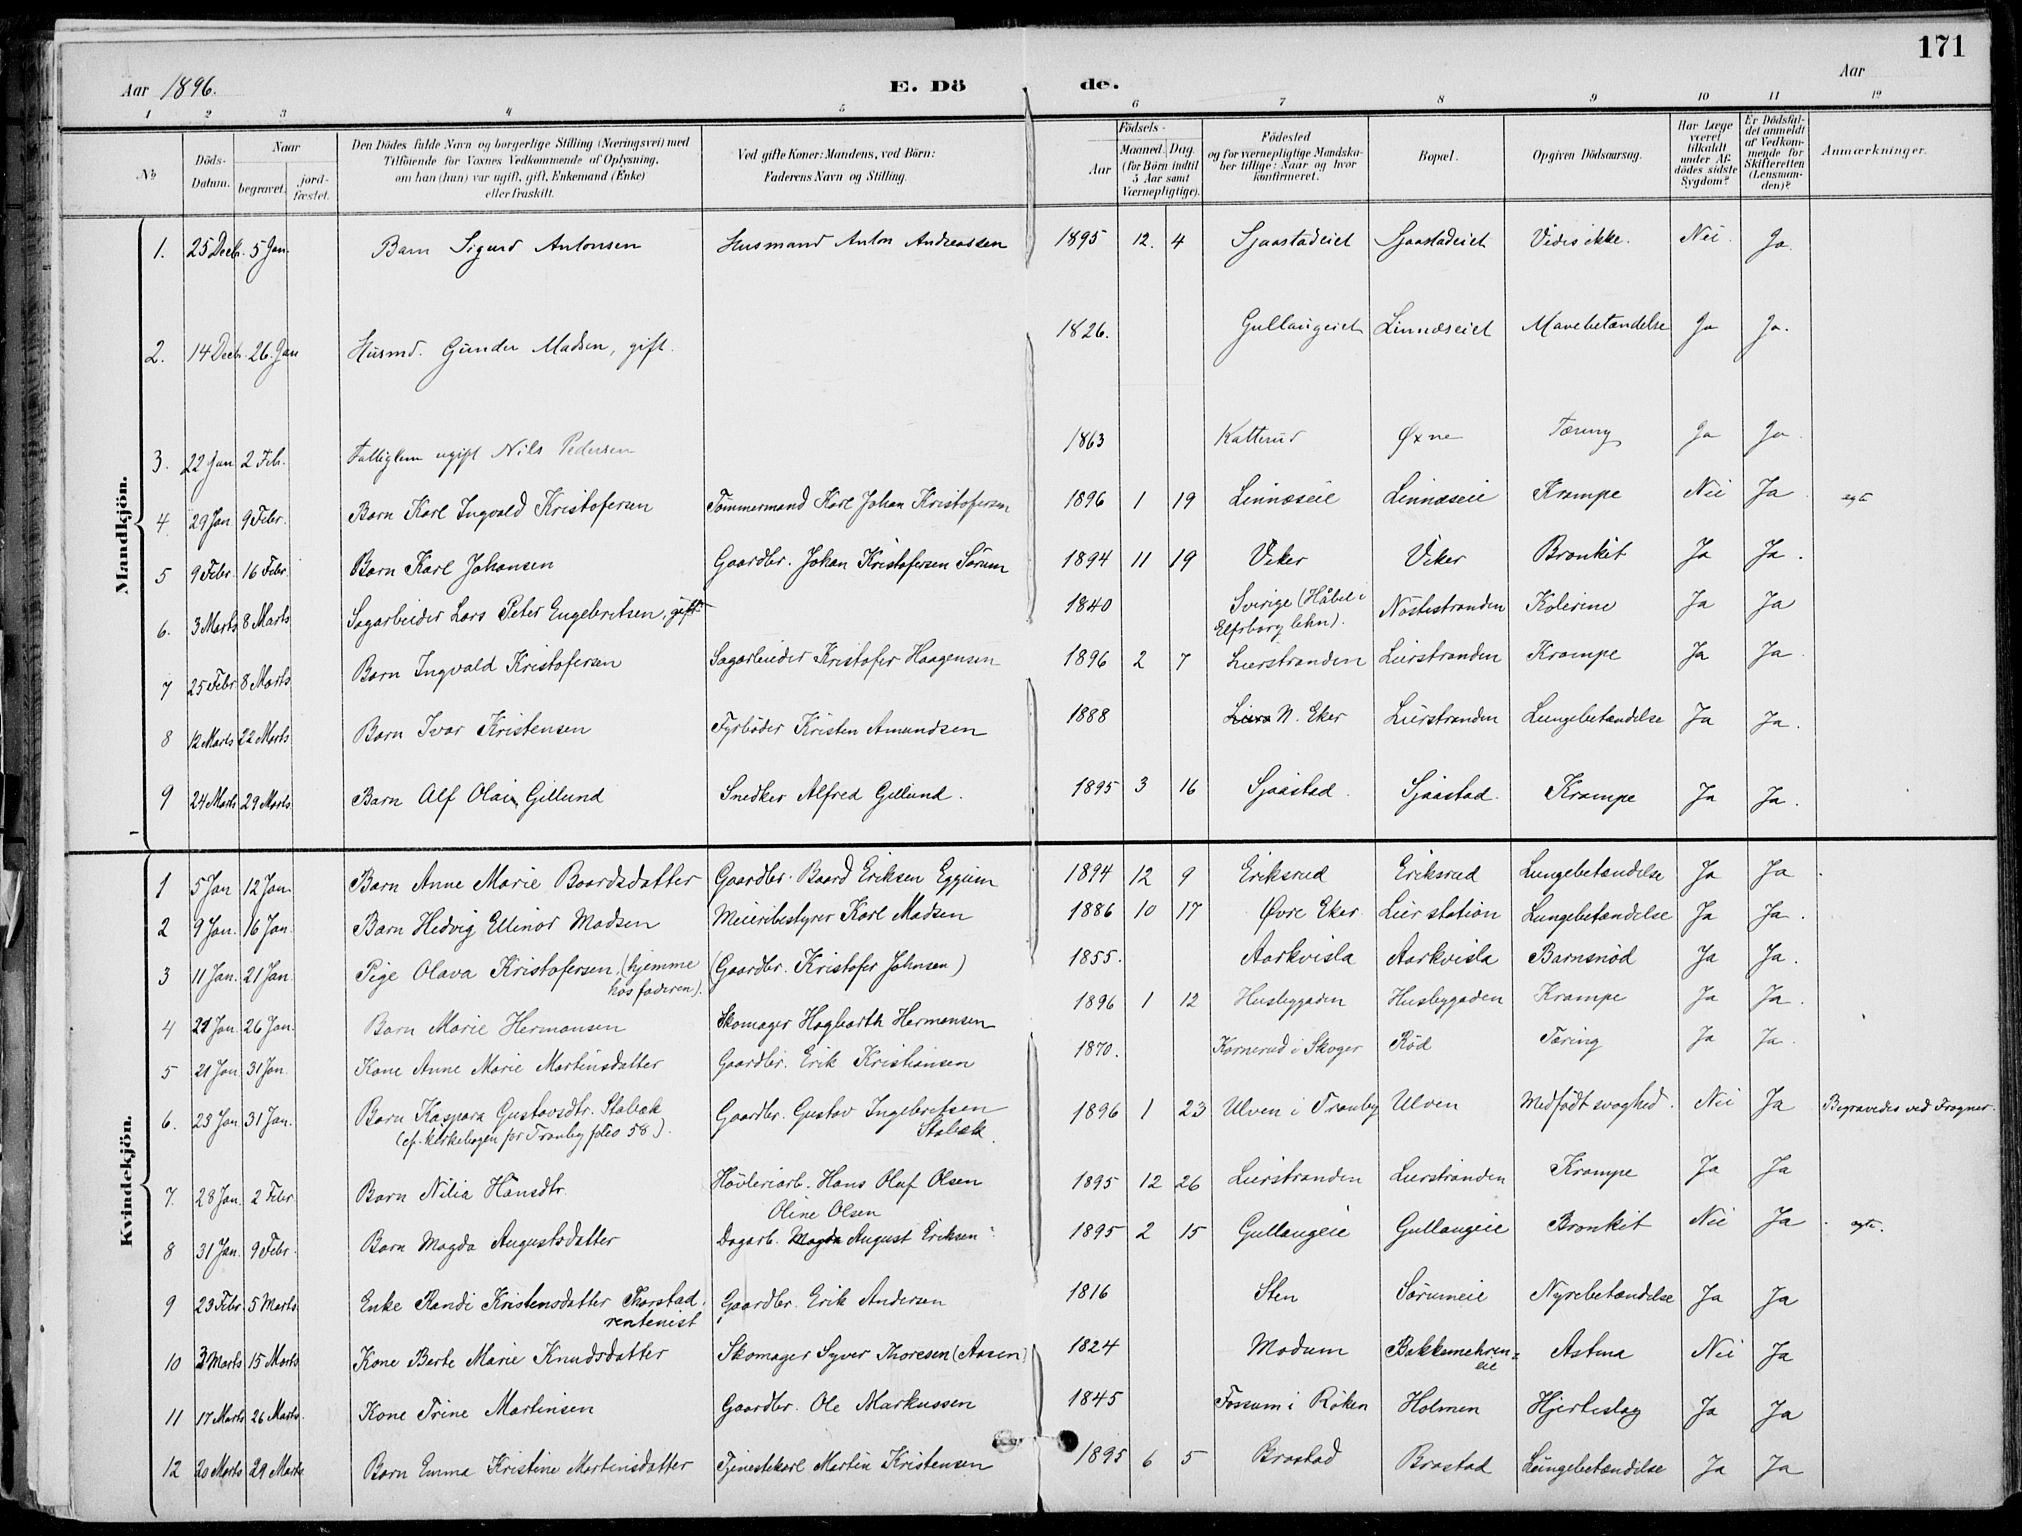 171
Aar 1896. E. Dö de. Aar
1 2 3 4 5 6 7 8 9 10 11 12
No
Döds-Datum.
Naar
begravet.
jord-fæstet.
Den Dödes fulde Navn og borgerlige Stilling (Næringsvei) med
Tilföiende for Voxnes Vedkommende af Oplysning,
om han (hun) var ugift, gift, Enkemand (Enke)
eller fraskilt.
Ved gifte Koner: Mandens, ved Börn:
Faderens Navn og Stilling.
Födsels-
Aar
Maaned. Dag.
(for Börn indtil
5 Aar samt
Værnepligtige).
Födested
og for værnepligtige Mandska-
ber tillige: Naar og hvor
konfirmeret.
Bopæl.
Opgiven Dödsaarsag.
Har Læge
været
tilkaldt
under Af-
dödes sidste
Sygdom?
Er Dödsfal-
det anmeldt
af Vedkom-
mende for
Skifteretten
(Lensman-
den)?
Anmærkninger.
Mandkjön.
1. 25 Decb. 5 Jan. Barn Sigurd Antonsen Husmand Anton Andreassen 1895 12. 4 Sjaastadeiet Sjaastadeiet Vides ikke. Nei. Ja.
2. 14 Decb. 26. Jan Husmd. Gunder Madsen, gift. 1826. Gullaugeiet Linnæseiet Mavebetændelse Ja Ja.
3. 22 Jan 2 Feb. Fattiglem ugift Nils Pedersen 1863 Katterud Øxne Tæring Ja Ja
4. 29 Jan 9 Febr. Barn Karl Ingvald Kristofersen Tömmermand Karl Johan Kristofersen 1896 1 19 Linnæseie Linnæseie Krampe Nei Ja egte
5 9 Febr. 16 Febr. Barn Karl Johansen Gaardbr. Johan Kristofersen Sörum 1894 11 19 Viker Viker Bronkit Ja Ja.
6. 3 Marts 8 Marts Sagarbeider Lars Peter Engebretsen, gift 1840 Sverige (Håbel i
Elfsborg lehn). Nöstestranden Kolerine Ja Ja
7 25 Febr 8 Marts Barn Ingvald Kristofersen Sagarbeider Kristofer Haagensen 1896 2 7 Lierstranden Lierstranden Krampe Ja Ja
8 12 Marts 22 Marts Barn Ivar Kristensen Fyrböder Kristen Amundsen 1888 N. Eker Lierstranden Lungebetændelse Ja Ja.
9 24 Marts 29 Marts. Barn Alf Olai Gillund Snedker Alfred Gillund. 1895 3 16 Sjaastad. Sjaastad. Krampe Ja Ja.
Kvindekjön.
1 5 Jan 12 Jan. Barn Anne Marie Baardsdatter Gaardbr. Baard Eriksen Eggum 1894 12 9 Eriksrud Eriksrud Lungebetændelse Ja Ja.
2 9 Jan. 16 Jan. Barn Hedvig Ellinor Madsen Meieribestyrer Karl Madsen 1886 10 17 Øvre Eker Lier station Lungebetændelse Ja Ja.
3 11 Jan. 21 Jan. Pige Olava Kristofersen, (hjemme
hos faderen). (Gaardbr. Kristofer Johnsen) 1855. Aarkvisla Aarkvisla Barnsnöd Ja Ja.
4 21 Jan. 26 Jan. Barn Marie Hermansen Skomager Hagbarth Hermansen 1896 1 12 Husbygaden Husbygaden Krampe Ja Ja.
5 21 Jan 31 Jan. Kone Anne Marie Martinsdatter Gaardbr. Erik Kristiansen 1870. Kornerud i Skoger Röd Tæring Ja Ja.
6. 23 Jan 31 Jan. Barn Kaspara Gustavsdtr. Stabæk
(cf. kirkebogen for Tranby folio 58). Gaardbr. Gustav Ingebretsen
Stabæk. 1896 1 23 Ulven i Tranby Ulven Medfödt svaghed. Nei Ja Begravedes ved Frogner.
7. 28 Jan. 2 Febr. Barn Nilia Hansdtr. Hövleriarb. Hans Olaf Olsen 1895 12 26 Lierstranden Lierstranden Krampe Ja Ja
8 31 Jan. 9 Febr. Barn Magda Augustsdatter Oline Olsen
Dagarb. Magda August Eriksen 1895 2 15 Gullaugeie Gullaugeie Bronkit Nei Ja. egte.
9 23 Febr. 5 Marts. Enke Randi Kristensdatter Thorstad,
rentenist Gaardbr. Erik Andersen 1816 Sten Sörumeie Nyrebetændelse Ja Ja
10 3 Marts 15 Marts Kone Berte Marie Knudsdatter Skomager Syver Thoresen (Aasen) 1824 Modum Bakkemehren=
eie Astma Nei Ja
11 17 Marts 26 Marts. Kone Trine Martinsen Gaardbr. Ole Markussen 1845 Fossum i Röken Holmen Hjerteslag Ja Ja
12 20 Marts 29 Marts Barn Emma Kristine Martinsdatter Tjenestekarl Martin Kristensen 1895 6 5 Brastad Brastad Lungebetændelse Ja Ja